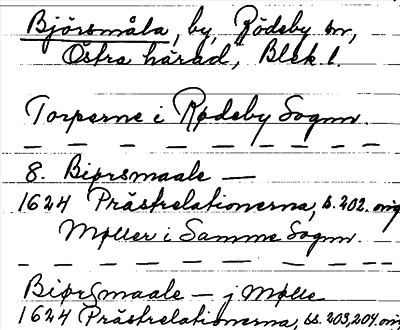 Björsmåla, by, Rödeby sn,
Östra härad, Blek. l.
Torperne i Rødeby Sognn.
— — — — — — — —
8. Biørsmaale —
1624 Prästrelationerna, s. 202. orig
Møller i Samme Sognn.
— — — — — — — —
BiørSmaale — j Mølle
1624 Prästrelationerna, ss. 203, 204. orig